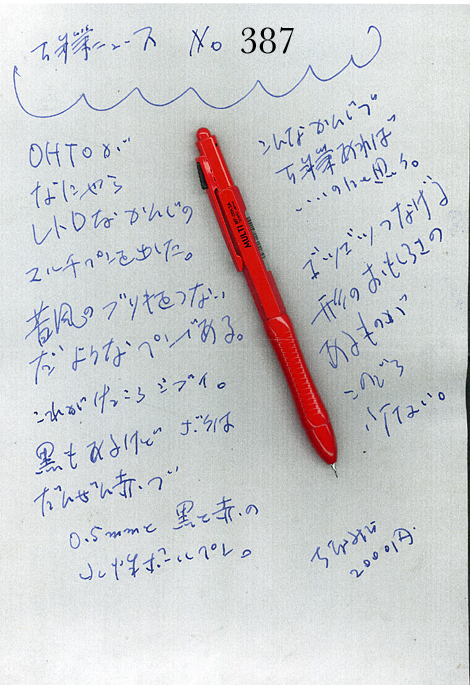 ニュース No 387
OHTOが
なにやら
レトロなかんじの
マルチペンを出した。
昔風のブリキをつない
だようなペンである。
これがけっこうシブイ。
黒もあるけど ボクは
だんぜん赤。
0.5mmと 黒と赤の
ボールペン。
こんなかんじで
あれば
・・・のにと思う。
つなげる
形のおもしろさの
あるものが
このごろ
少ない。
ちなみに
2000円.
MULTI